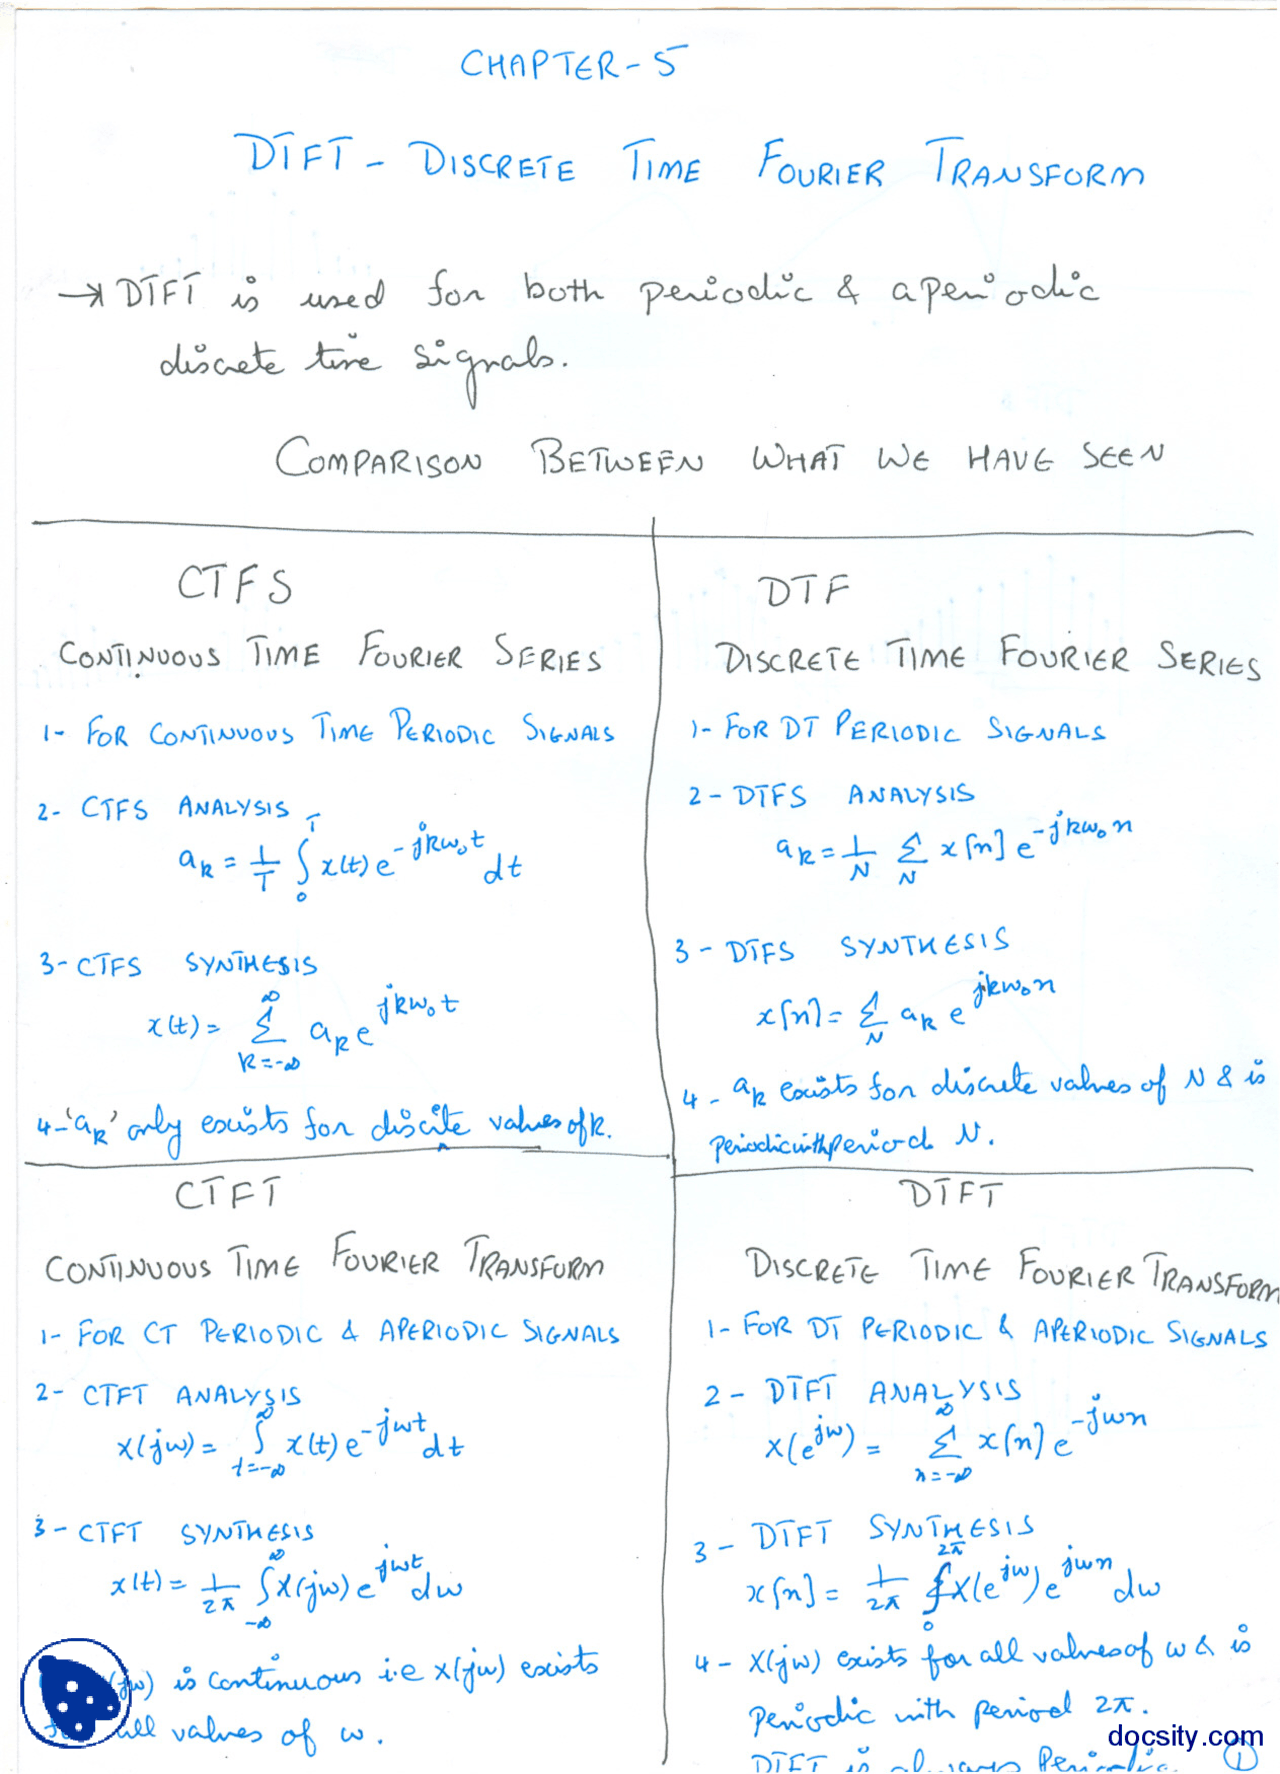 CHAPTER-5
DTFT - DISCRETE TIME FOURIER TRANSFORM
→ DTFT is used for both periodic & aperiodic
discrete time signals.
COMPARISON BETWEEN WHAT WE HAVE SEEN
CTFS
CONTINUOUS TIME FOURIER SERIES
1- FOR CONTINUOUS TIME PERIODIC SIGNALS
2- CTFS ANALYSIS
a_k = 1/T ∫_0^T x(t) e^{-jkω₀t} dt
3- CTFS SYNTHESIS
x(t) = Σ_{k=-∞}^{∞} a_k e^{jkω₀t}
4- 'a_k' only exists for discite values of k.
DTF
DISCRETE TIME FOURIER SERIES
1- FOR DT PERIODIC SIGNALS
2- DTFS ANALYSIS
a_k = 1/N Σ_N x[n] e^{-jkω₀n}
3- DTFS SYNTHESIS
x[n] = Σ_N a_k e^{jkω₀n}
4- a_k exists for discrete values of N & is
periodic with period N.
CTFT
CONTINUOUS TIME FOURIER TRANSFORM
1- FOR CT PERIODIC & APERIODIC SIGNALS
2- CTFT ANALYSIS
x(jω) = ∫_{t=-∞}^{∞} x(t) e^{-jωt} dt
3- CTFT SYNTHESIS
x(t) = 1/2π ∫_{-∞}^{∞} x(jω) e^{jωt} dω
(jω) is continuous i.e x(jω) exists
all values of ω.
DTFT
DISCRETE TIME FOURIER TRANSFORM
1- FOR DT PERIODIC & APERIODIC SIGNALS
2- DTFT ANALYSIS
x(e^{jω}) = Σ_{n=-∞}^{∞} x[n] e^{-jωn}
3- DTFT SYNTHESIS
x[n] = 1/2π ∮_0^{2π} x(e^{jω}) e^{jωn} dω
4- x(jω) exists for all values of ω & is
periodic with period 2π.
DTFT is always Periodic.
1
docsity.com